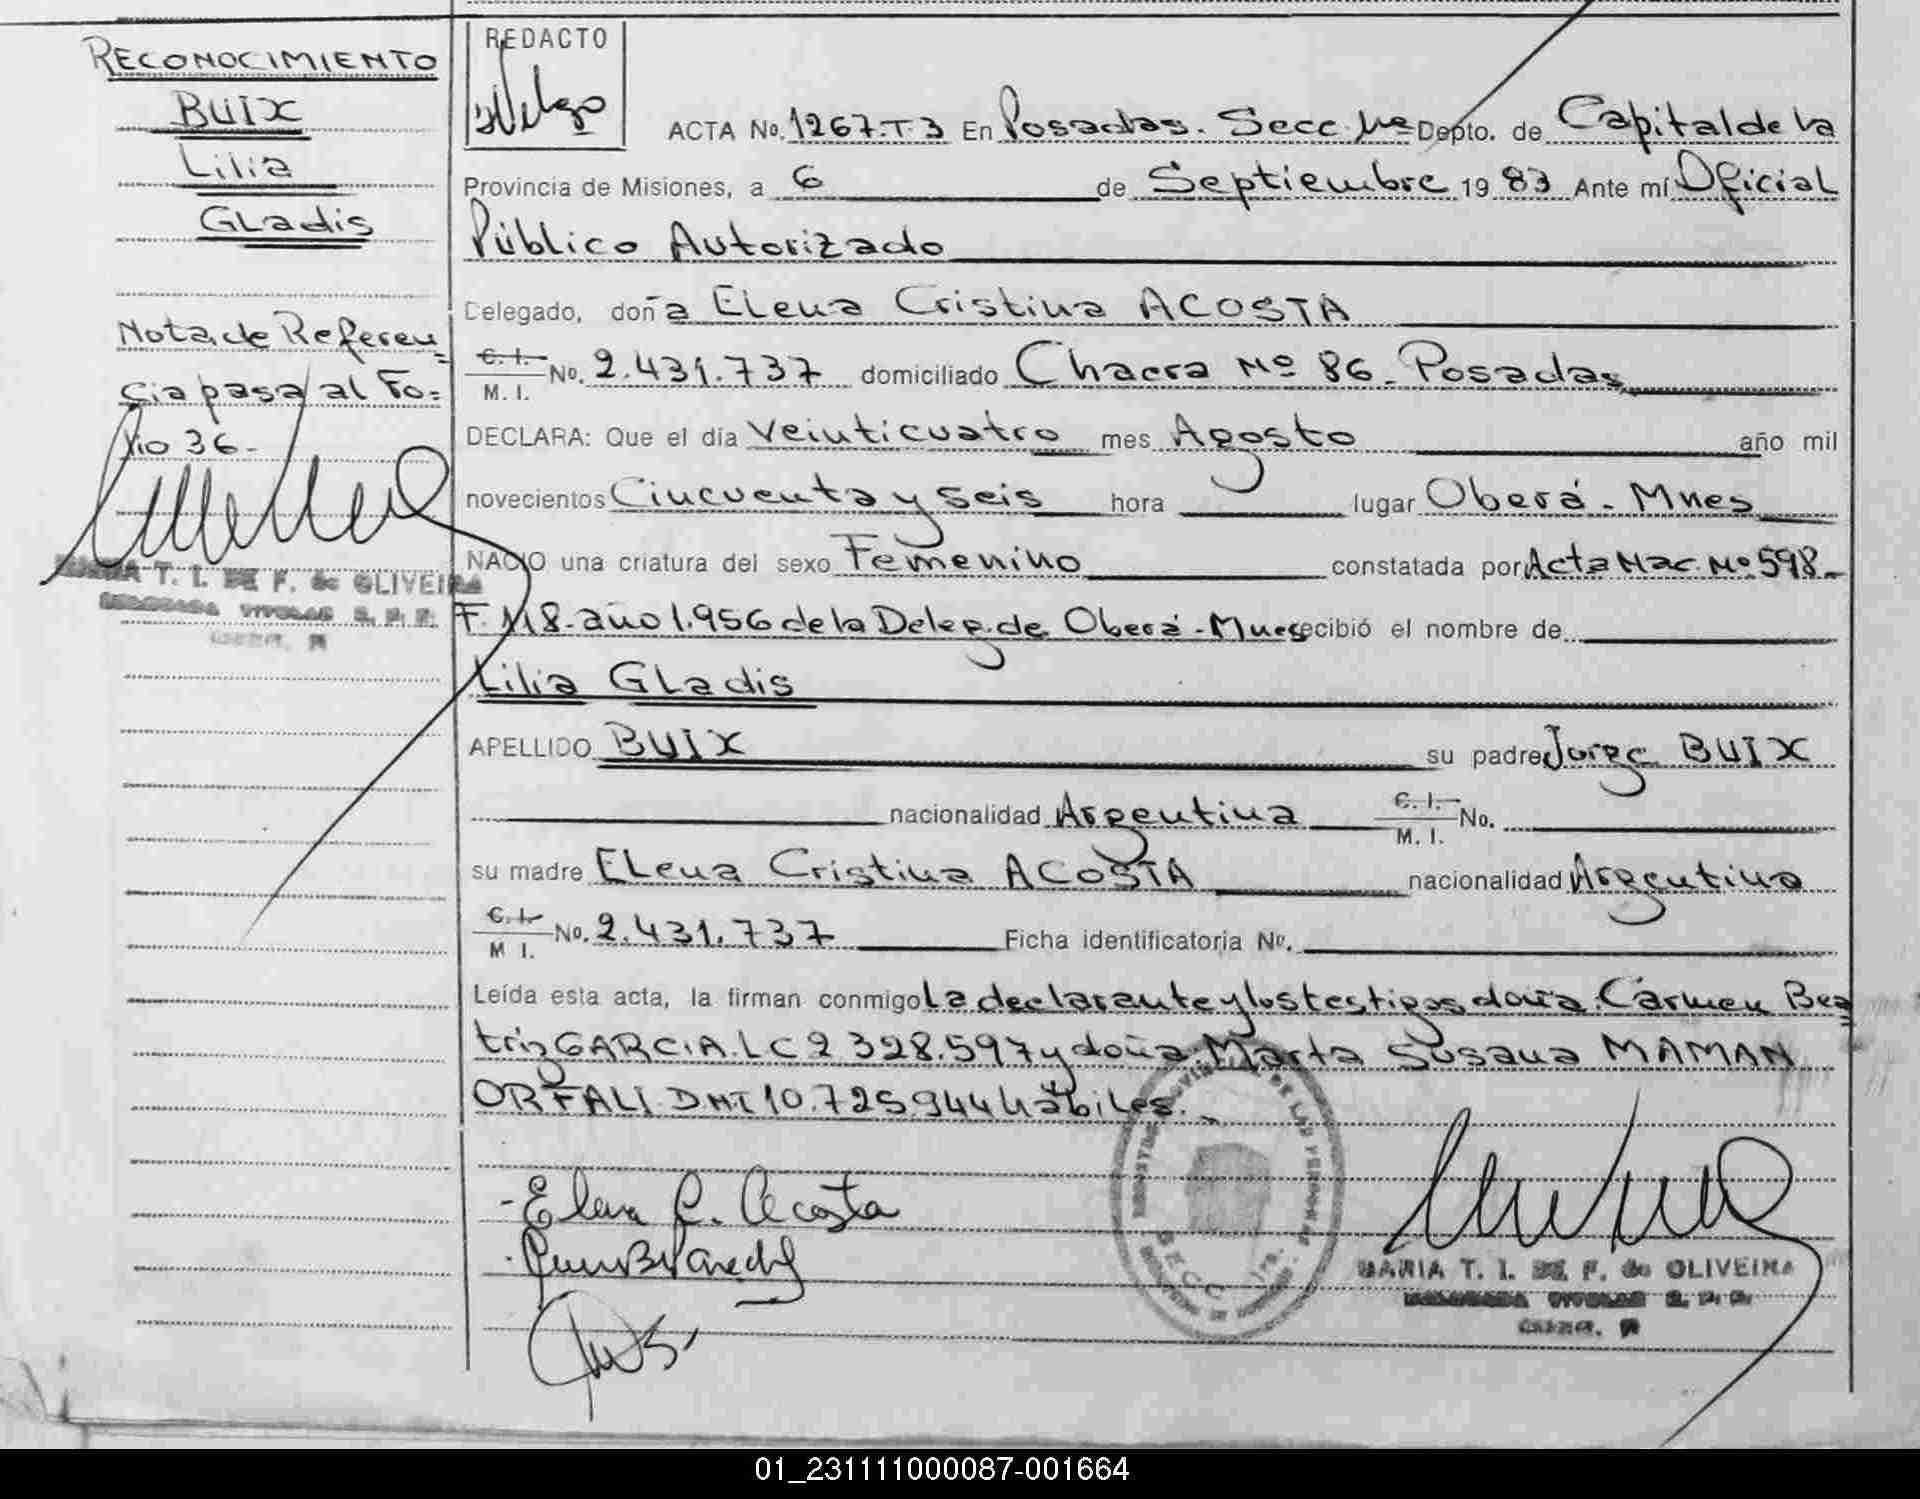 RECONOCIMIENTO
BUIX
Lilia
GLadis
Nota de Referen=
cia pasa al Fo=
lio 36-
MARIA T. I. DE F. de OLIVEIRA
REDACTO
ACTA No. 1267.T.3 En Posadas. Secc. 1ra Depto. de Capital de la
Provincia de Misiones, a 6 de Septiembre 19 83 Ante mí Oficial
Público Autorizado
Delegado, doña ELena Cristina ACOSTA
C. I. / M. I. No. 2.431.737 domiciliado Chacra Nº 86. Posadas
DECLARA: Que el día Veinticuatro mes Agosto año mil
novecientos Cincuenta y seis hora lugar Oberá - Mnes
NACIO una criatura del sexo Femenino constatada por Acta Nac. Nº 598-
F. 118-año 1.956 de la Deleg. de Oberá - Mnes recibió el nombre de
Lilia GLadis
APELLIDO BUIX su padre Jorge BUIX
nacionalidad Argentina C. I. / M. I. No.
su madre ELena Cristina ACOSTA nacionalidad Argentina
C. I. / M I. No. 2.431.737 Ficha identificatoria No.
Leída esta acta, la firman conmigo La declarante y los testigos doña Carmen Bea=
triz GARCIA. LC 2 328.597 y doña Marta Susana MAMAN
ORFALI DNI 10.725944 hábiles.
-Elena C. Acosta
MARIA T. I. DE F. de OLIVEIRA
01_231111000087-001664